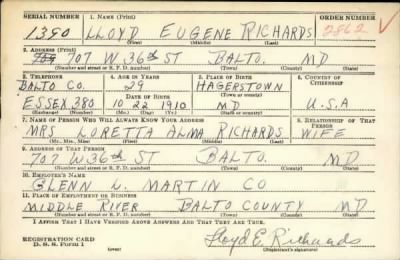 SERIAL NUMBER 1. NAME (Print) ORDER NUMBER
1390 LLOYD EUGENE RICHARDS 2862
(First) (Middle) (Last)
2. ADDRESS (Print)
707 W 36th ST BALTO. MD
(Number and street or R. F. D. number) (Town) (County) (State)
3. TELEPHONE 4. AGE IN YEARS 5. PLACE OF BIRTH 6. COUNTRY OF CITIZENSHIP
BALTO CO. 29 HAGERSTOWN
DATE OF BIRTH (Town or county)
ESSEX 380 10 22 1910 MD U.S.A
(Exchange) (Number) (Mo.) (Day) (Yr.) (State or country)
7. NAME OF PERSON WHO WILL ALWAYS KNOW YOUR ADDRESS 8. RELATIONSHIP OF THAT PERSON
MRS. LORETTA ALMA RICHARDS WIFE
(Mr., Mrs., Miss) (First) (Middle) (Last)
9. ADDRESS OF THAT PERSON
707 W 36th ST BALTO. MD
(Number and street or R. F. D. number) (Town) (County) (State)
10. EMPLOYER'S NAME
GLENN L. MARTIN CO
11. PLACE OF EMPLOYMENT OR BUSINESS
MIDDLE RIVER BALTO COUNTY MD
(Number and street or R. F. D. number) (Town) (County) (State)
I AFFIRM THAT I HAVE VERIFIED ABOVE ANSWERS AND THAT THEY ARE TRUE.
REGISTRATION CARD
D. S. S. Form 1 (over) Lloyd E. Richards
(Registrant's signature)